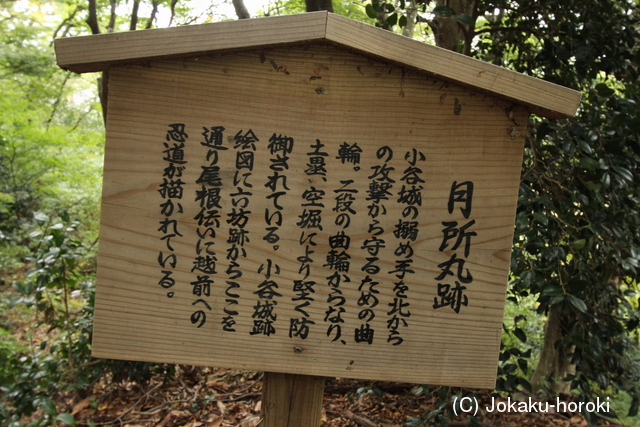 月所丸跡
小谷城の搦め手を北から
の攻撃から守るための曲
輪。二段の曲輪からなり、
土塁、空堀により堅く防
御されている。小谷城跡
絵図に六坊跡からここを
通り尾根伝いに越前への
忍道が描かれている。
(C) Jokaku-horoki